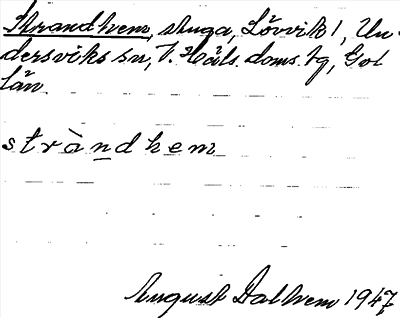 Strandhem, stuga, Lövvik 1, Un-
dersviks sn, V. Häls. doms. tg, Gvl
län.
stràndhem
August Dalhem 1947